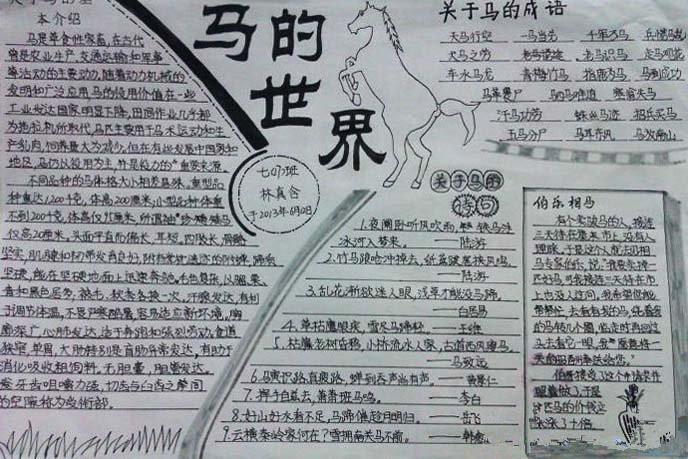 关于马的基
本介绍
马是草食性家畜,在古代
曾是农业生产、交通运输和军事
等活动的主要动力,随着动力机械的
发明和广泛应用,马的役用价值在一些
工业发达国家明显下降,田间作业几乎都
为拖拉机所取代,马匹主要用于马术运动和生
产乳肉,饲养量大为减少,但在有些发展中国家和
地区,马仍以役用为主,并是役力的重要来源。
不同品种的马体格大小相差悬殊,重型品
种重达1200千克,体高200厘米;小型品种体重
不到200千克,体高仅95厘米,所谓袖珍矮马
仅高20厘米。头面平直而偏长,耳短。四肢长,骨骼
坚实,肌腱和韧带发育良好,附有掌枕遗迹的附蝉,蹄质
坚硬,能在坚硬地面上迅速奔驰。毛色复杂,以骝、栗、
青和黑色居多;被毛、秋冬各换一次,汗腺发达,有利
于调节体温,不畏严寒酷暑,容易适应新环境,胸
廓深广,心肺发达,适于奔跑和强烈劳动,食道
狭窄,单胃,大肠特别是盲肠异常发达,有助于
消化吸收粗饲料,无胆囊,胆管发达。
齿咀嚼力强,切齿与臼齿之间
的空隙称为
马的
世界
七(7)班
林真含
于2013年6月0日
关于马的成语
天马行空 一马当先 千军万马 兵慌马乱
犬马之劳 老马识途 走马观花
车水马龙 青梅竹马 指鹿为马 马到成功
马革裹尸 塞翁失马
汗马功劳 蛛丝马迹 招兵买马
五马分尸 马耳东风 马放南山
关于马的
诗句
1.夜阑卧听风吹雨,铁马冰河入梦来。——陆游
2.竹马踉哈冲掉去,纸鸢跋扈挟风鸣。
——陆游
3.乱花渐欲迷人眼,浅草才能没马蹄。
——白居易
4.草枯鹰眼疾,雪尽马蹄轻。——王维
5.枯藤老树昏鸦,小桥流水人家,古道西风瘦马。
——马致远
6.马熟识路真疲路,蝉到吞声尚有声。——黄景仁
7.挥手自兹去,萧萧班马鸣。——李白
8.好山好水看不足,马蹄催趁月明归。——岳飞
9.云横秦岭家何在?雪拥南关马不前。——韩愈
伯乐相马
有个卖骏马的人,接连
三天待在集市上,没有人
理睬,于是这个人就去见相
马专家伯乐,说:
匹好马,可是接连三天待在市
上也没人过问,我希望您能
帮帮忙,去看看我的马,绕着我
的马转几个圈,临走时再回过
头去看它一眼,我愿意将一
天的报酬奉送给您。”
伯乐接受了这个
于是
这匹马的价钱立
涨了十倍